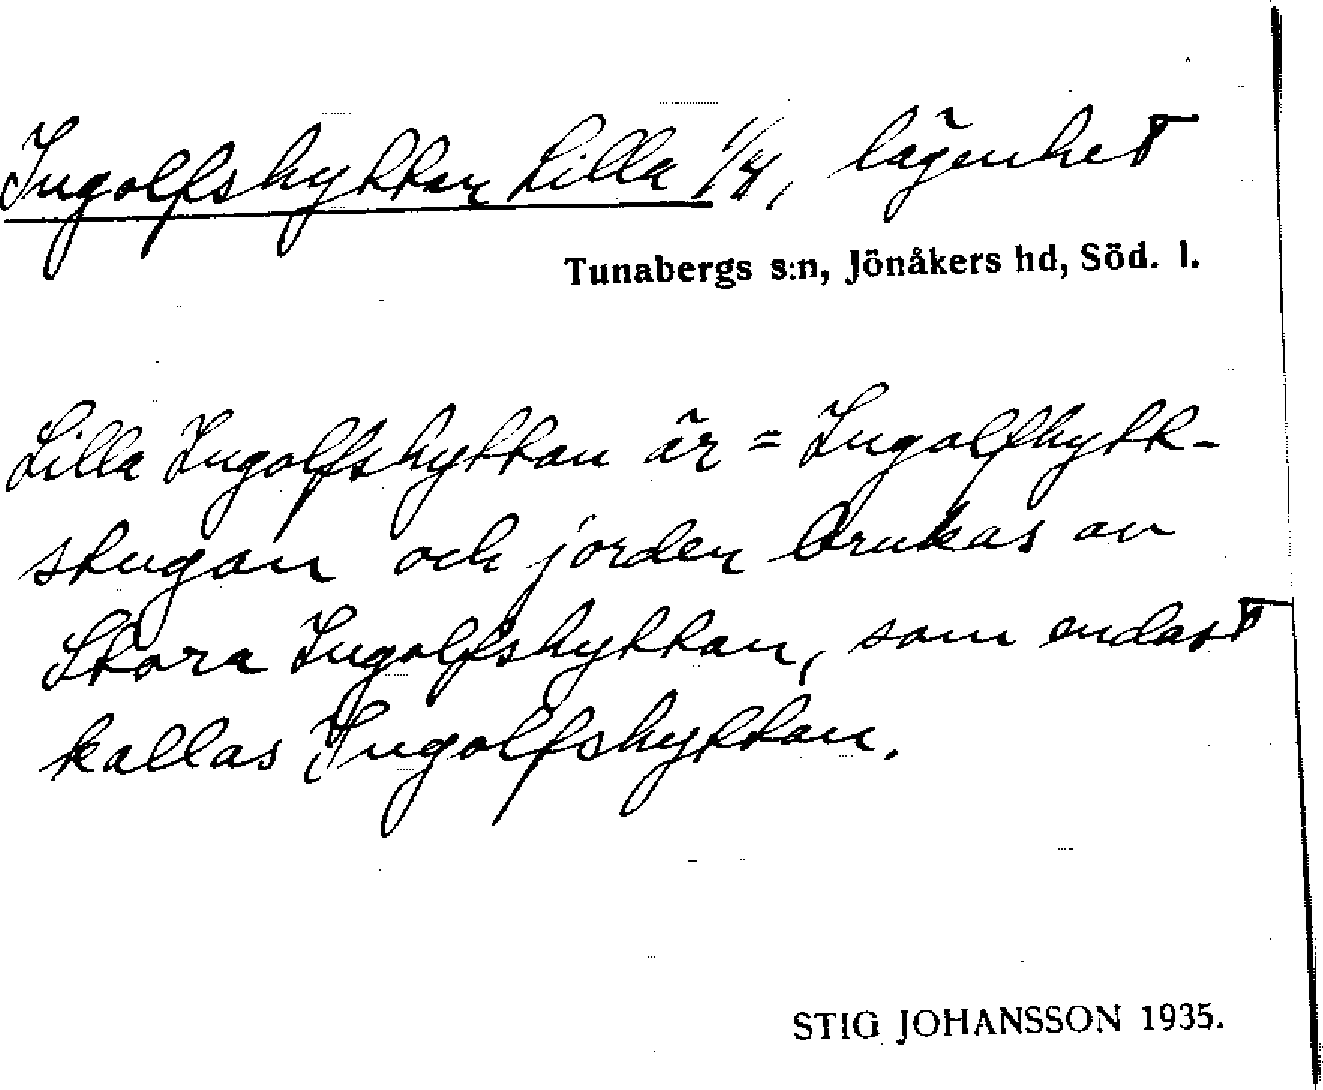 Ingolfshyttan Lilla 1/4, lägenhet
Tunabergs s:n, Jönåkers hd, Söd. l.
Lilla Ingolfshyttan är = Ingolfhytt-
stugan och jorden brukas av
Stora Ingolfshyttan, som endast
kallas Ingolfshyttan.
STIG JOHANSSON 1935.